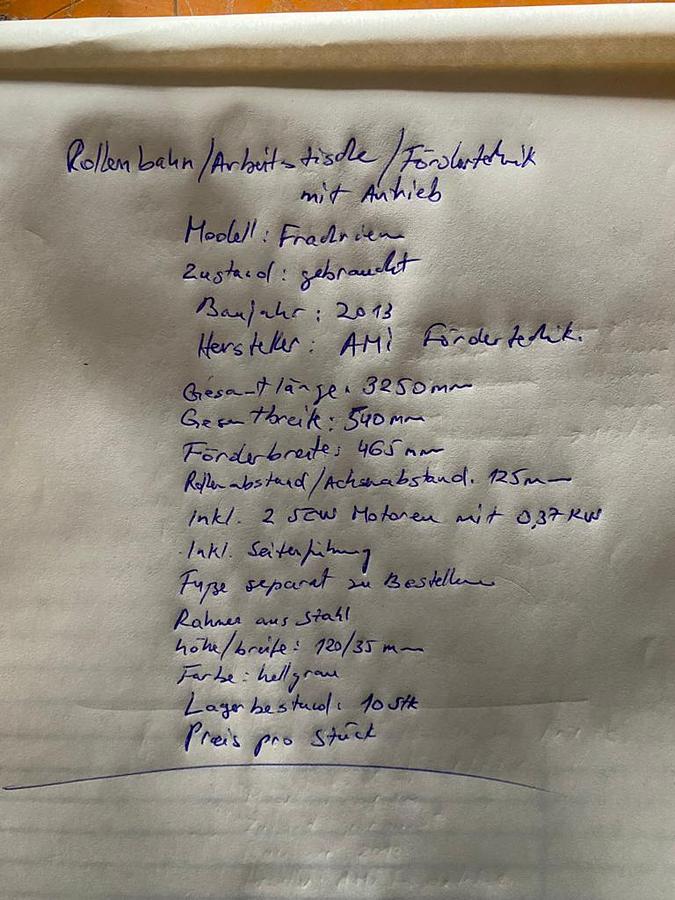 Rollenbahn/Arbeitstische/Fördertechnik
mit Antrieb
Modell:
Zustand: gebraucht
Baujahr: 2013
Hersteller: AMI Fördertechnik.
Gesamtlänge: 3250mm
Gesamtbreite: 540mm
Förderbreite: 465mm
Rollenabstand/Achsenabstand. 125mm
Inkl. 2 SEW Motoren mit 0,37 KW
Inkl. Seitenführung
Fuße separat zu Bestellen
Rahmen aus Stahl
höhe/breite: 120/35 mm
Farbe: hellgrau
Lagerbestand: 10 Stk
Preis pro Stück